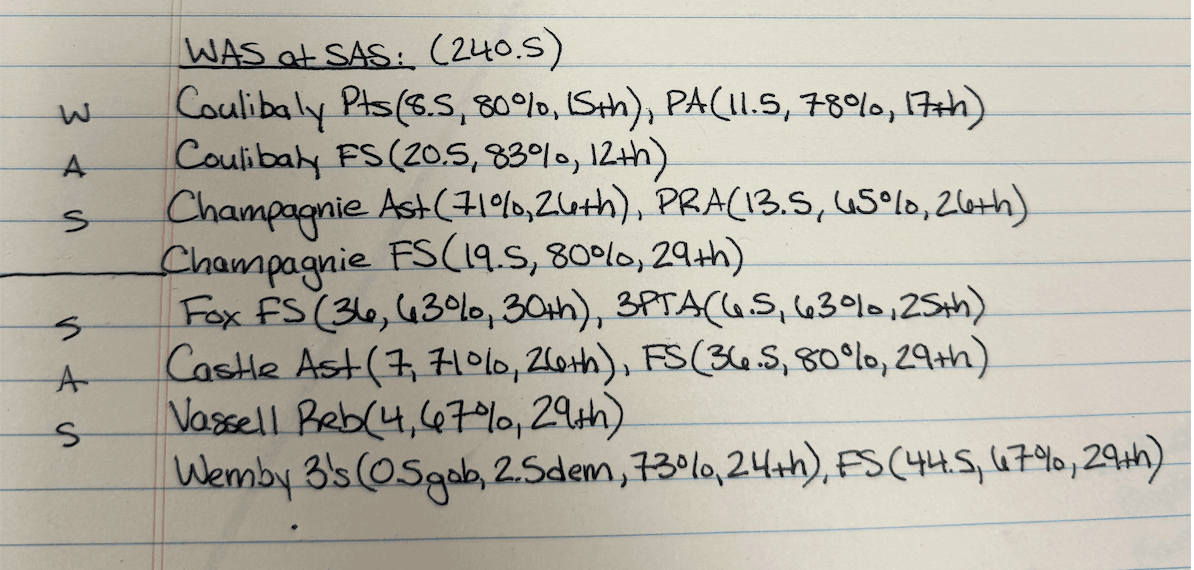 WAS at SAS: (240.5)
W Coulibaly Pts (8.5, 80%, 15th), PA (11.5, 78%, 17th)
A Coulibaly FS (20.5, 83%, 12th)
S Champagnie Ast (71%, 26th), PRA (13.5, 65%, 26th)
Champagnie FS (19.5, 80%, 29th)
S Fox FS (36, 63%, 30th), 3PTA (6.5, 63%, 25th)
A Castle Ast (7, 71%, 26th), FS (36.5, 80%, 29th)
S Vassell Reb (4, 67%, 29th)
Wemby 3's (0.5gob, 2.5dem, 73%, 24th), FS (44.5, 67%, 29th)